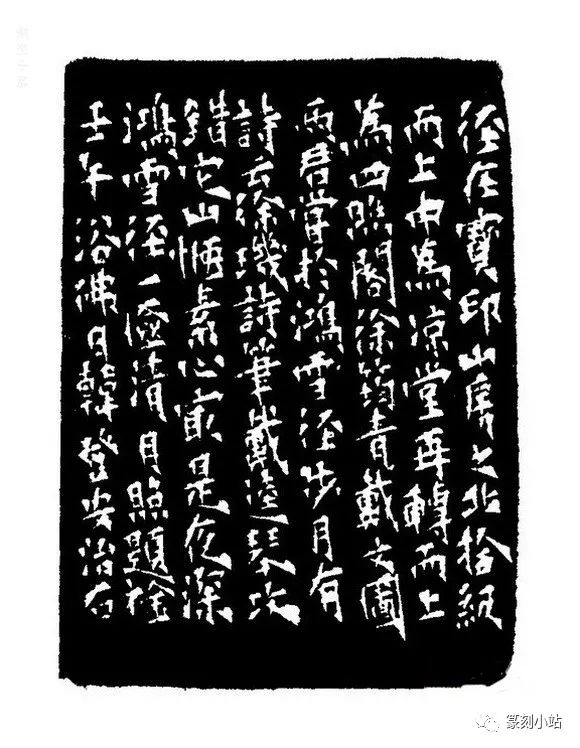 徑在寶印山房之北拾級
而上中為涼堂再轉而上
為四照閣徐筠青戴文圃
兩君嘗於鴻雪徑步月有
詩云徐璣詩筆戴逵琴攻
錯它山愜素心最是夜深
鴻雪徑一清月照題襟
壬午浴佛日韓登安治石
篆刻小站
篆刻小站